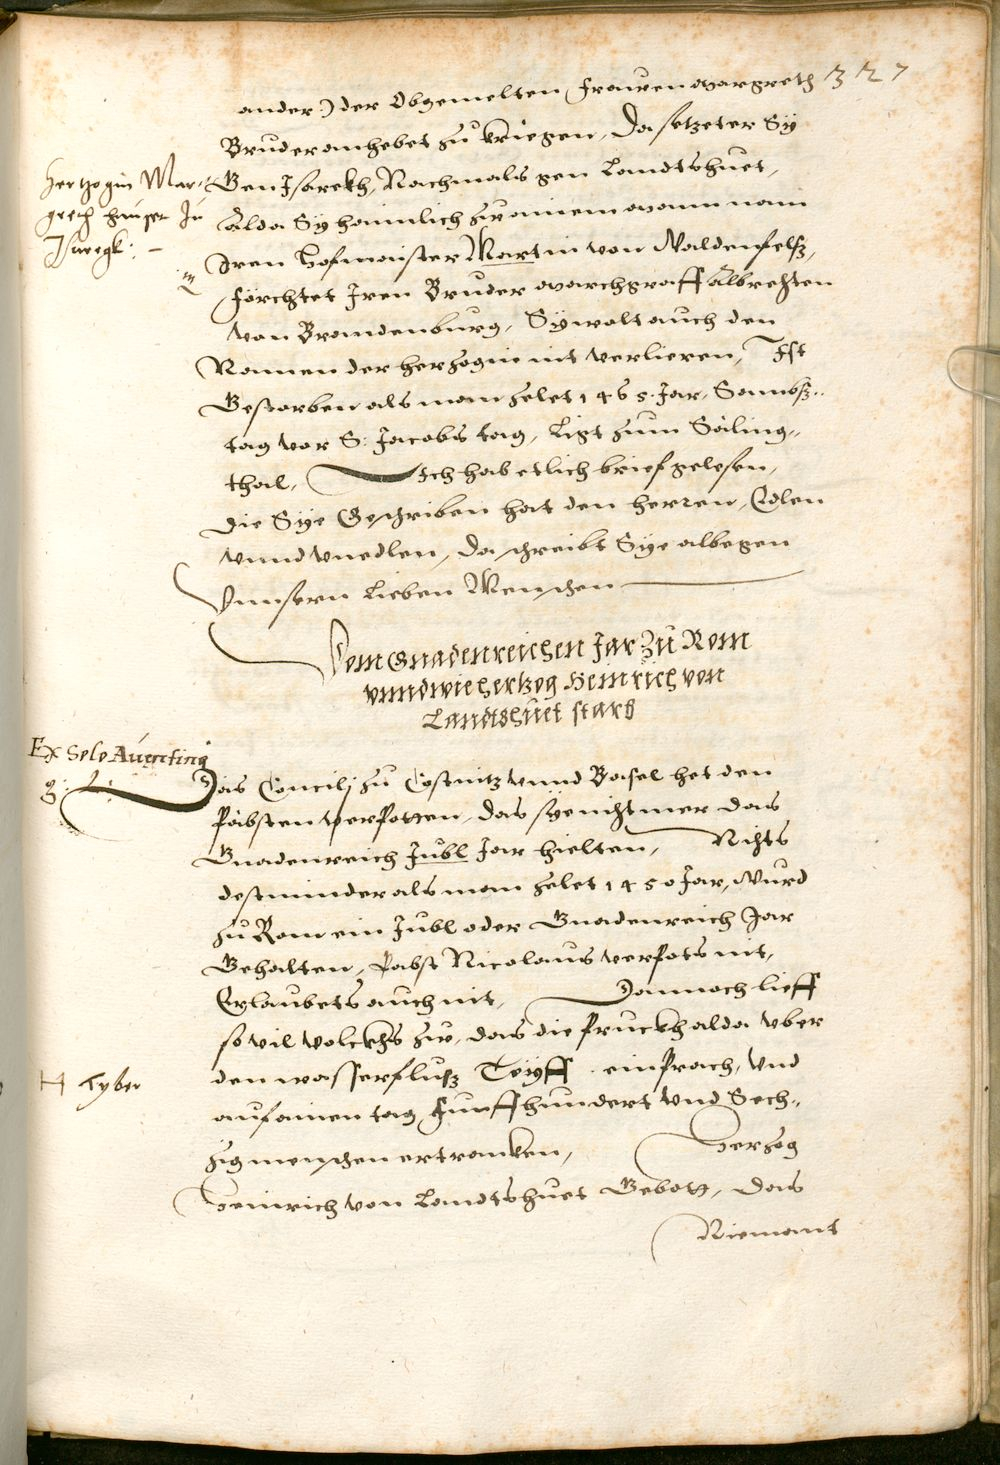 327
ander :) der Obgemelten frauen Margreth
Bruder anhebet zu kriegen, Da setzet er Sy
Hertzogin Mar-
greth hauset zu
Isaregk: –
Gen Isarekh, Nachmals gen Landtshuet,
Alda Sy haimlich zu ainem mann nam
Iren Hofmaister Martin von Waldenfelß,
förchtet Iren Bruder marchgraff Albrechten
von Brandenburg, Sy wolt auch den
Namen der herzogin nit verlieren, Ist
Gestorben als man zelet 1465. Jar, Sambß„
tag vor S: Jacobs tag, Ligt zum Säling„
thal, Ich hab etlich brief gelesen,
Die Sye Geschriben hat den herren, Edlen
vnnd vnedlen, Da schreibt Sye albegen
Vnnsern Lieben Menschen
Vom Gnadenreichen Jar Zu Rom
vnnd wie hertzog Heinrich von
Landtshuet starb
Ex Solo Auentino
Das Concilj zu Costnitz vnnd Basel het den
Päbsten verpotten, das sye nicht mer das
Gnadenreich Jubl Jar hielten, Nichts
destminder als man zelet 1450 Jar, Wurd
zu Rom ein Jubl oder Gnadenreich Jar
Gehalten, Pabst Nicolaus verpots nit,
Erlaubets auch nit, Dannoch lieff
so vil volckhs zu, das die Pruckh alda vber
H Tyber
den wasserfluß Teyff einprach, Vnd
auf ainen tag Funffhundert Vnd Sech„
zig menschen ertranken, Herzog
Heinrich von Landtshuet Gebott, Das
Niemant